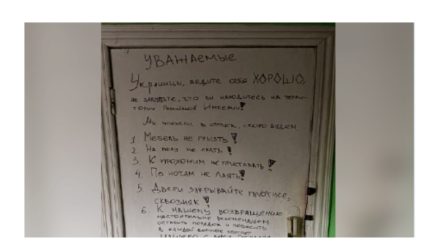 УВАЖАЕМЫЕ
Украинцы, ведите себя ХОРОШО
не забывайте, что вы находитесь на терри-
тории Империи!
Мы поехали в отпуск, скоро будем
1 Мебель не грызть!
2 На полу не срать!
3. К прохожим не приставать!
4. По ночам не лаять!
5. Двери закрывайте
сквозняк!
6. К нашему возвращению
настоятельно рекомендуем
оставить порядок и положить
в каждый